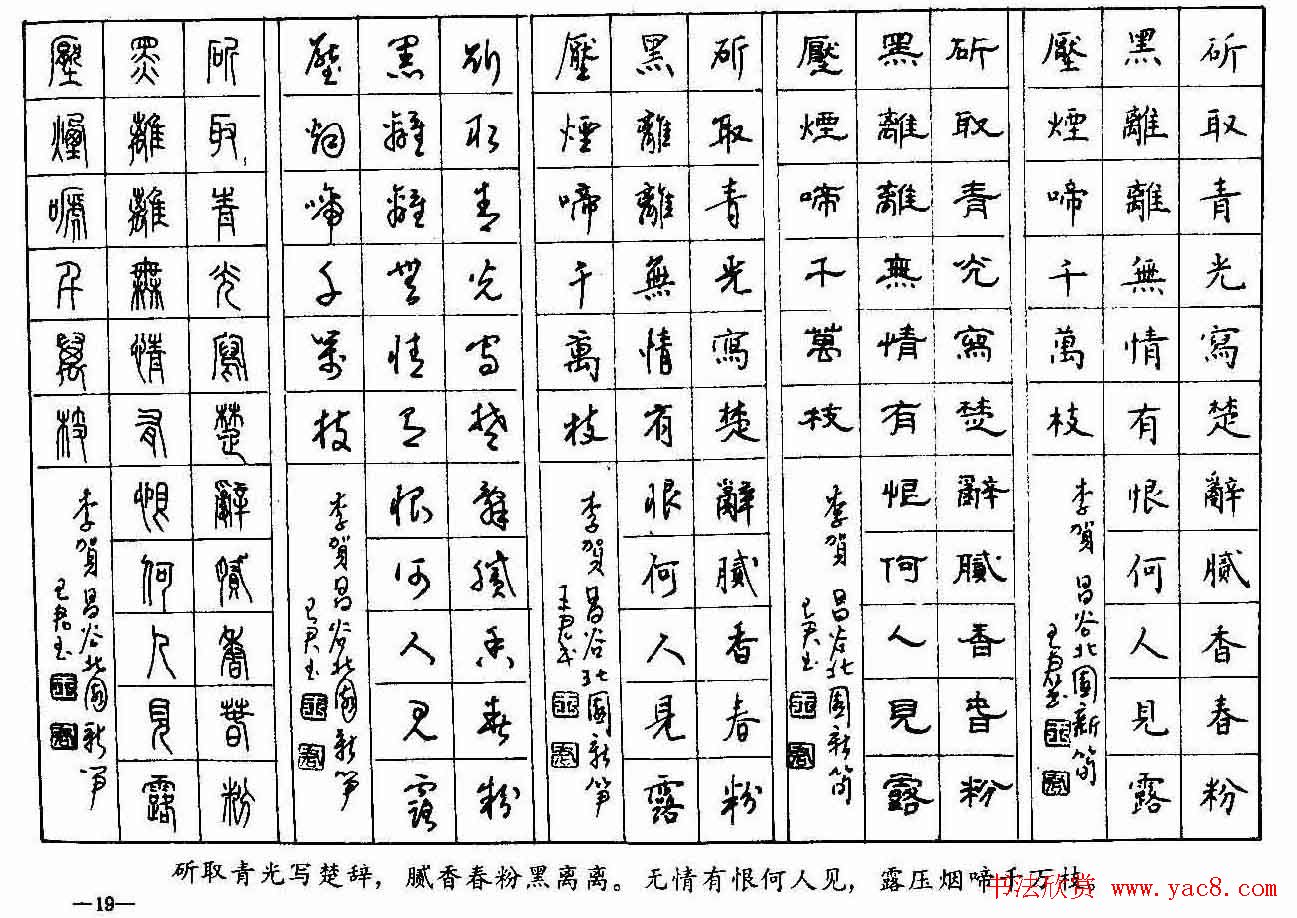 斫取青光寫楚辭膩香春粉
黑離離無情有恨何人見露
壓煙啼千萬枝
李賀 昌谷北園新筍
斫取青光寫楚辭膩香春粉
黑離離無情有恨何人見露
壓煙啼千萬枝
李賀 昌谷北園新筍
斫取青光寫楚辭膩香春粉
黑離離無情有恨何人見露
壓煙啼千萬枝
李賀昌谷北園新笋
斫取青光寫楚辭膩香春粉
黑離離無情有恨何人見露
壓煙啼千萬枝
李賀昌谷北園新笋
斫取青光寫楚辭膩香春粉
黑離離無情有恨何人見露
壓煙啼千萬枝
李賀昌谷北園新笋
斫取青光写楚辞，腻香春粉黑离离。无情有恨何人见，露压烟啼千万枝。
书法欣赏 www.yac8.com
—19—